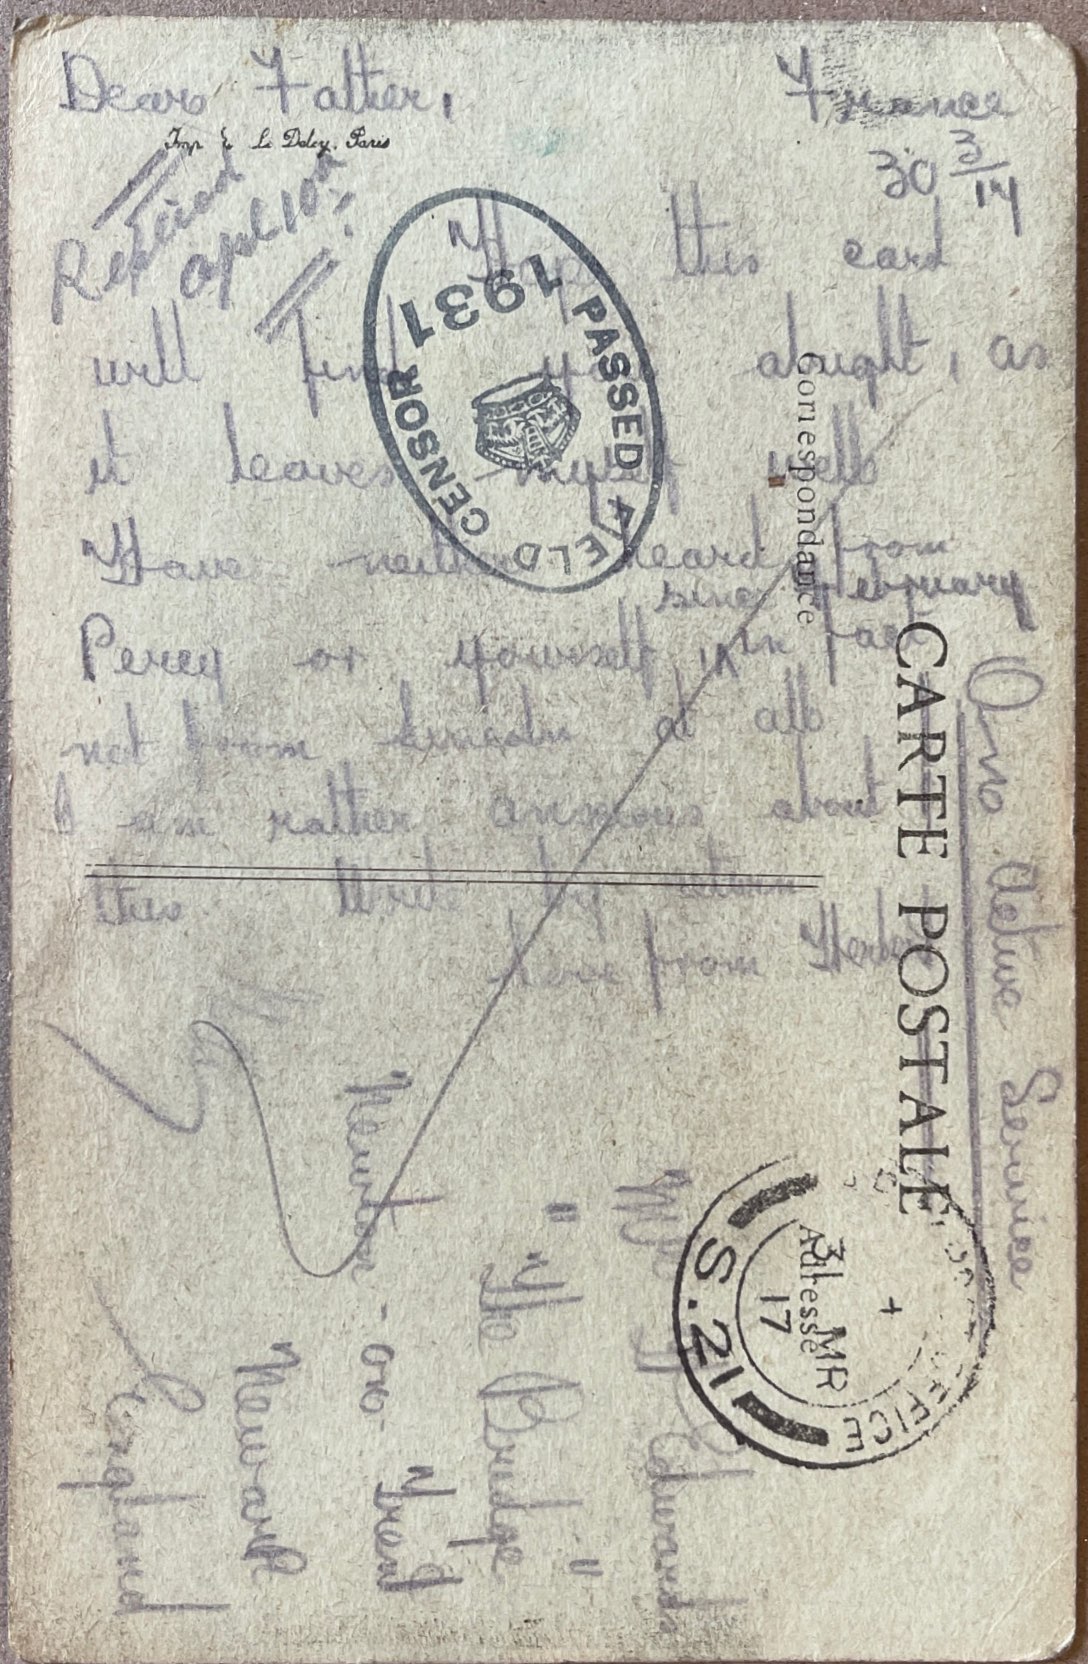 Dear Father,
France
30 3/17
Imp. E. Le Deley, Paris
Received
April 10th
Hope this card
will find you alright, as
it leaves myself well
Have neither heard from
since February
Percy or yourself, in fact
not from Lincoln at all
I am rather anxious about
this. Write by return
Love from Herbert
Correspondance
CARTE POSTALE
Adresse
On Active Service
PASSED FIELD CENSOR
1931
OFFICE
31 MR
17
S.21
Mr Edwards
"The Bridge"
Newton-on-Trent
Newark
England